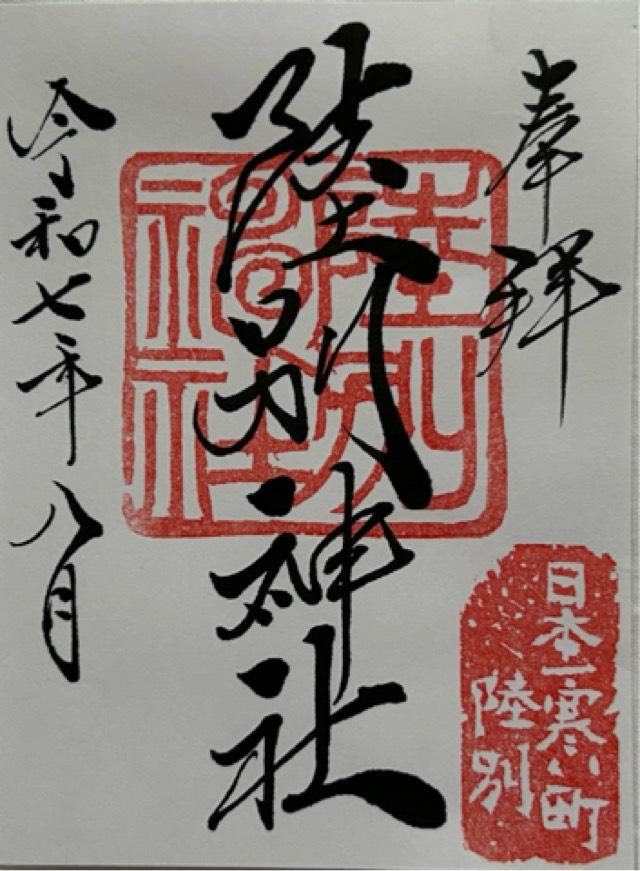 奉拜
陸別神社
陸別神社
日本一寒い町
陸別
令和七年八月